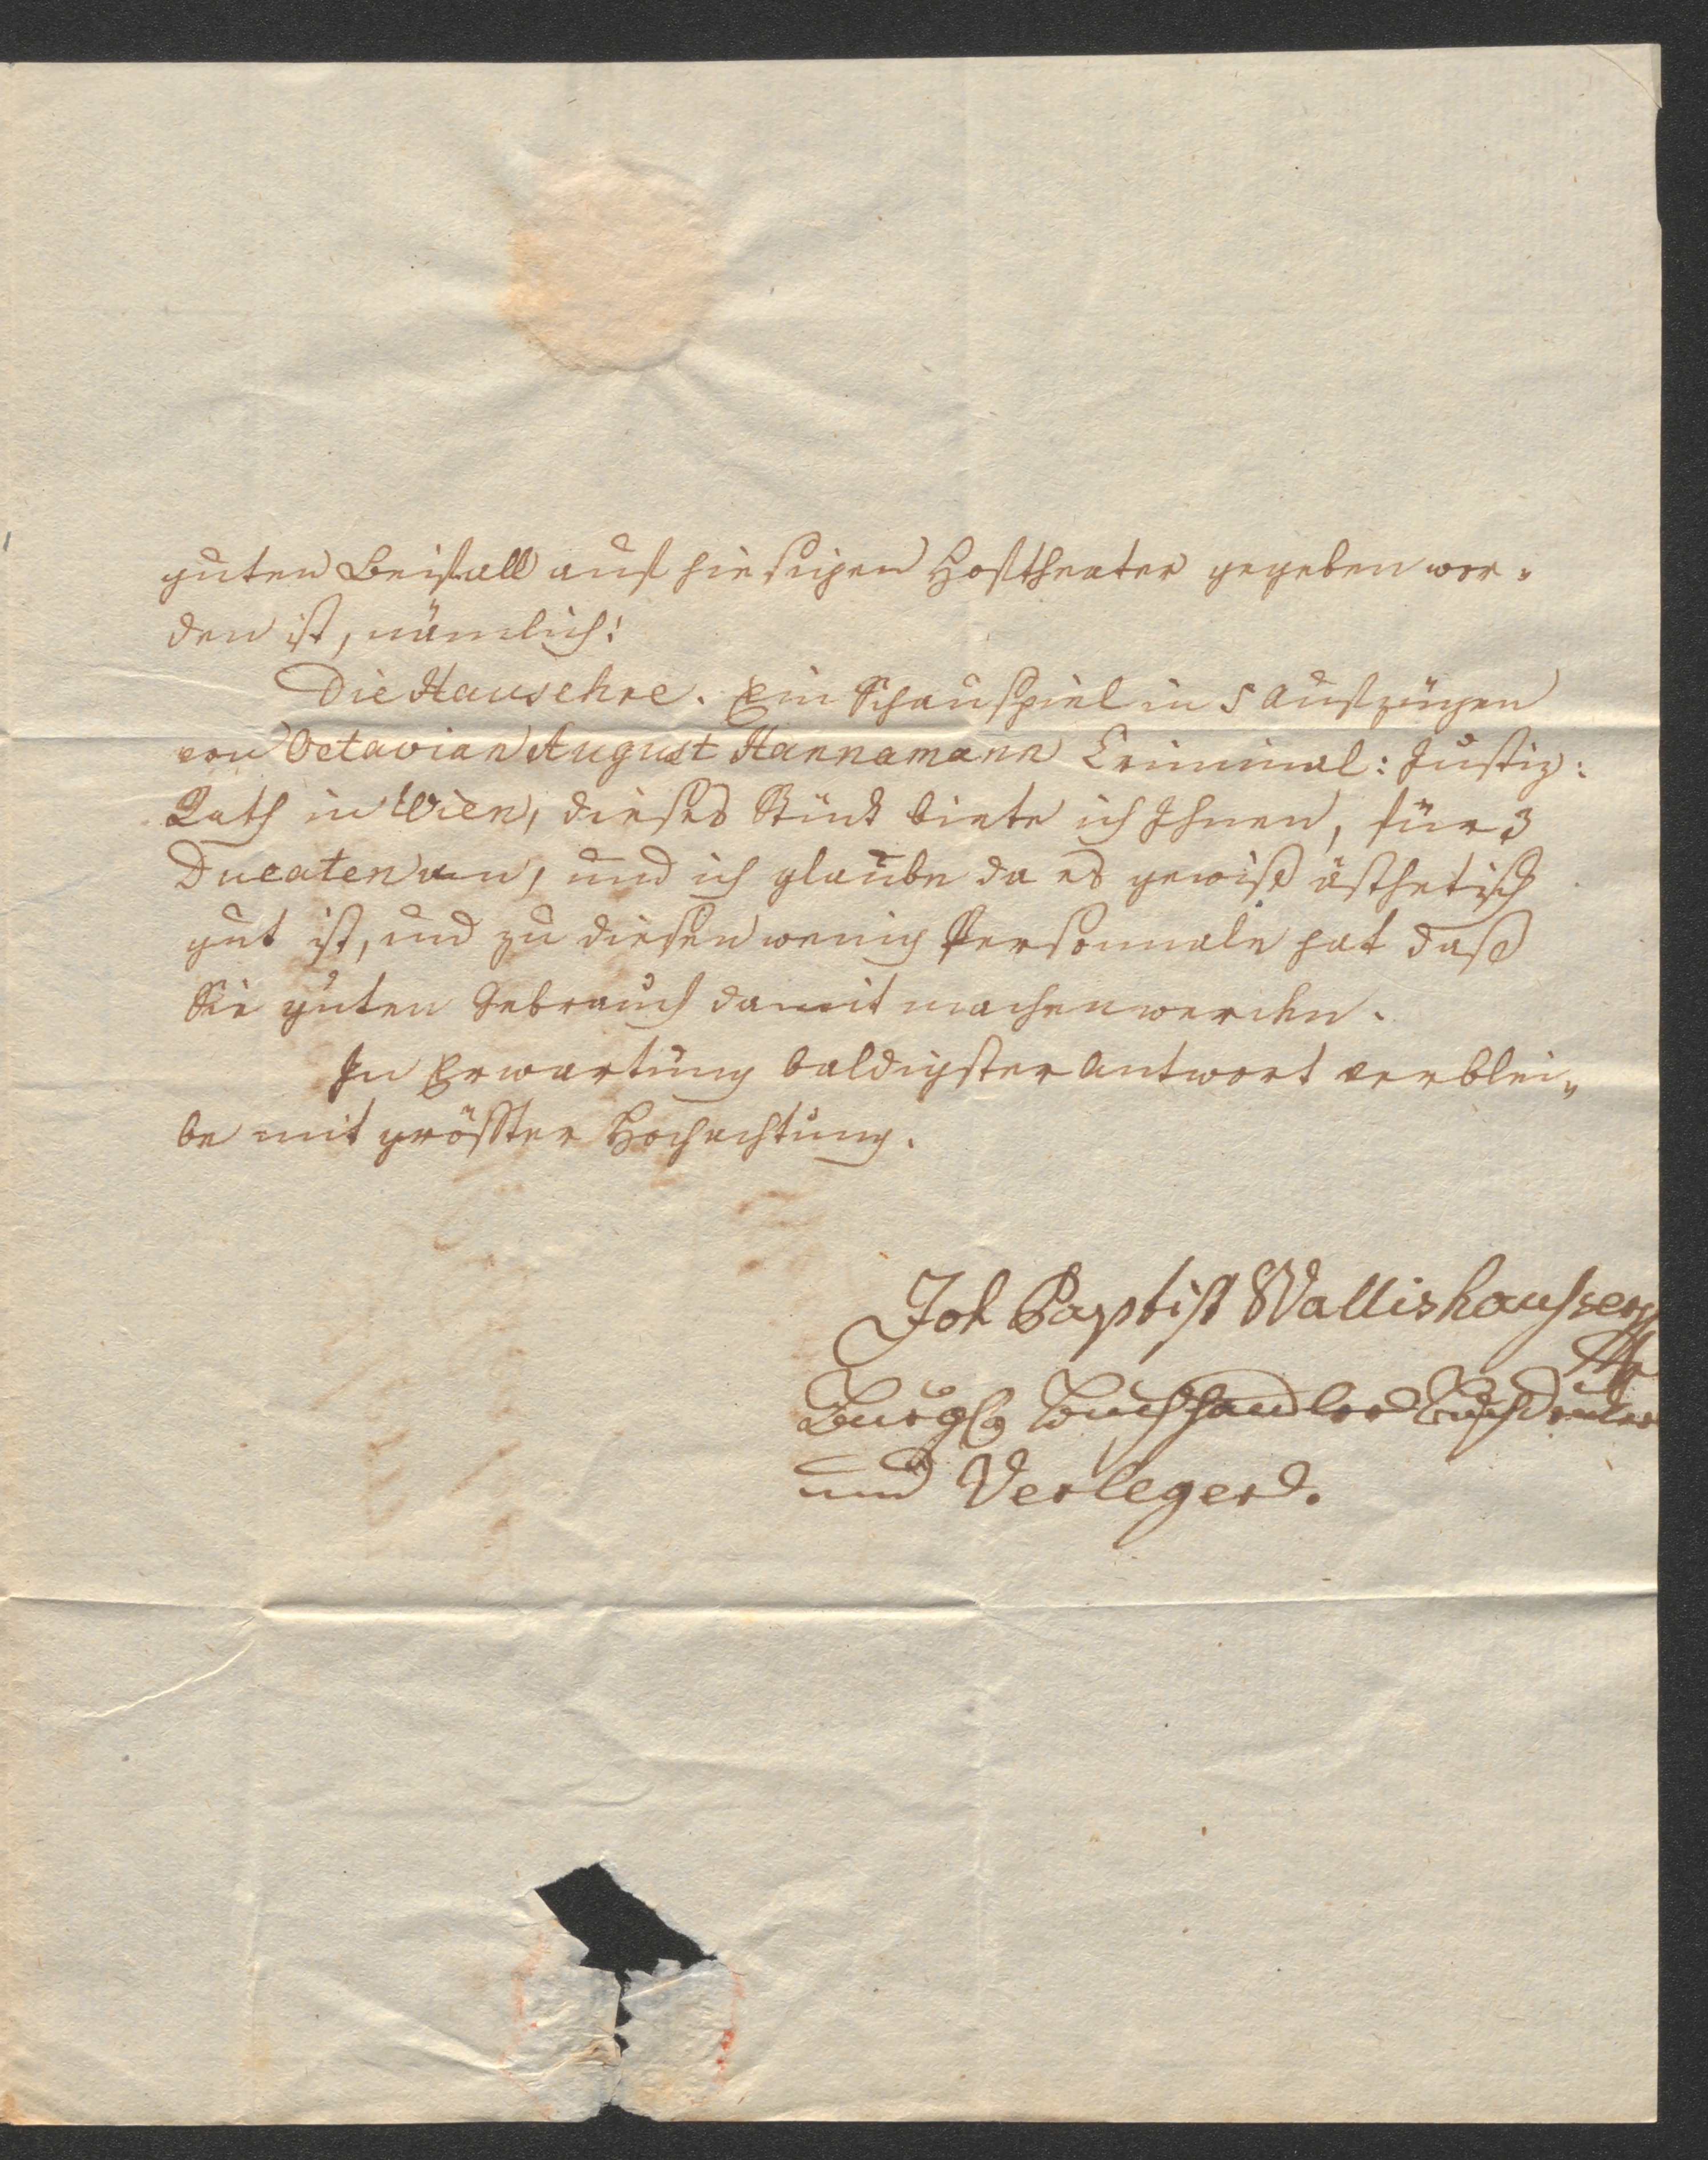 guten Beifall auf hiesigen Hoftheater gegeben wor„
den ist, nämlich:
Die Hausehre. Ein Schauspiel in 5 Aufzügen
von Octavian August Hannamann Criminal: Justiz:
Rath in Wien, dieses Stück biete ich Ihnen, für 3
Ducaten an, und ich glaube da es gewiß ästhetisch
gut ist, und zu diesen wenig Personnale hat daß
Sie guten Gebrauch damit machen werden.
In Erwartung baldigster Antwort verblei„
be mit größter Hochachtung.
Joh Baptist Wallishausser
Burgl Buchhandler Buchdruker
und Verleger.